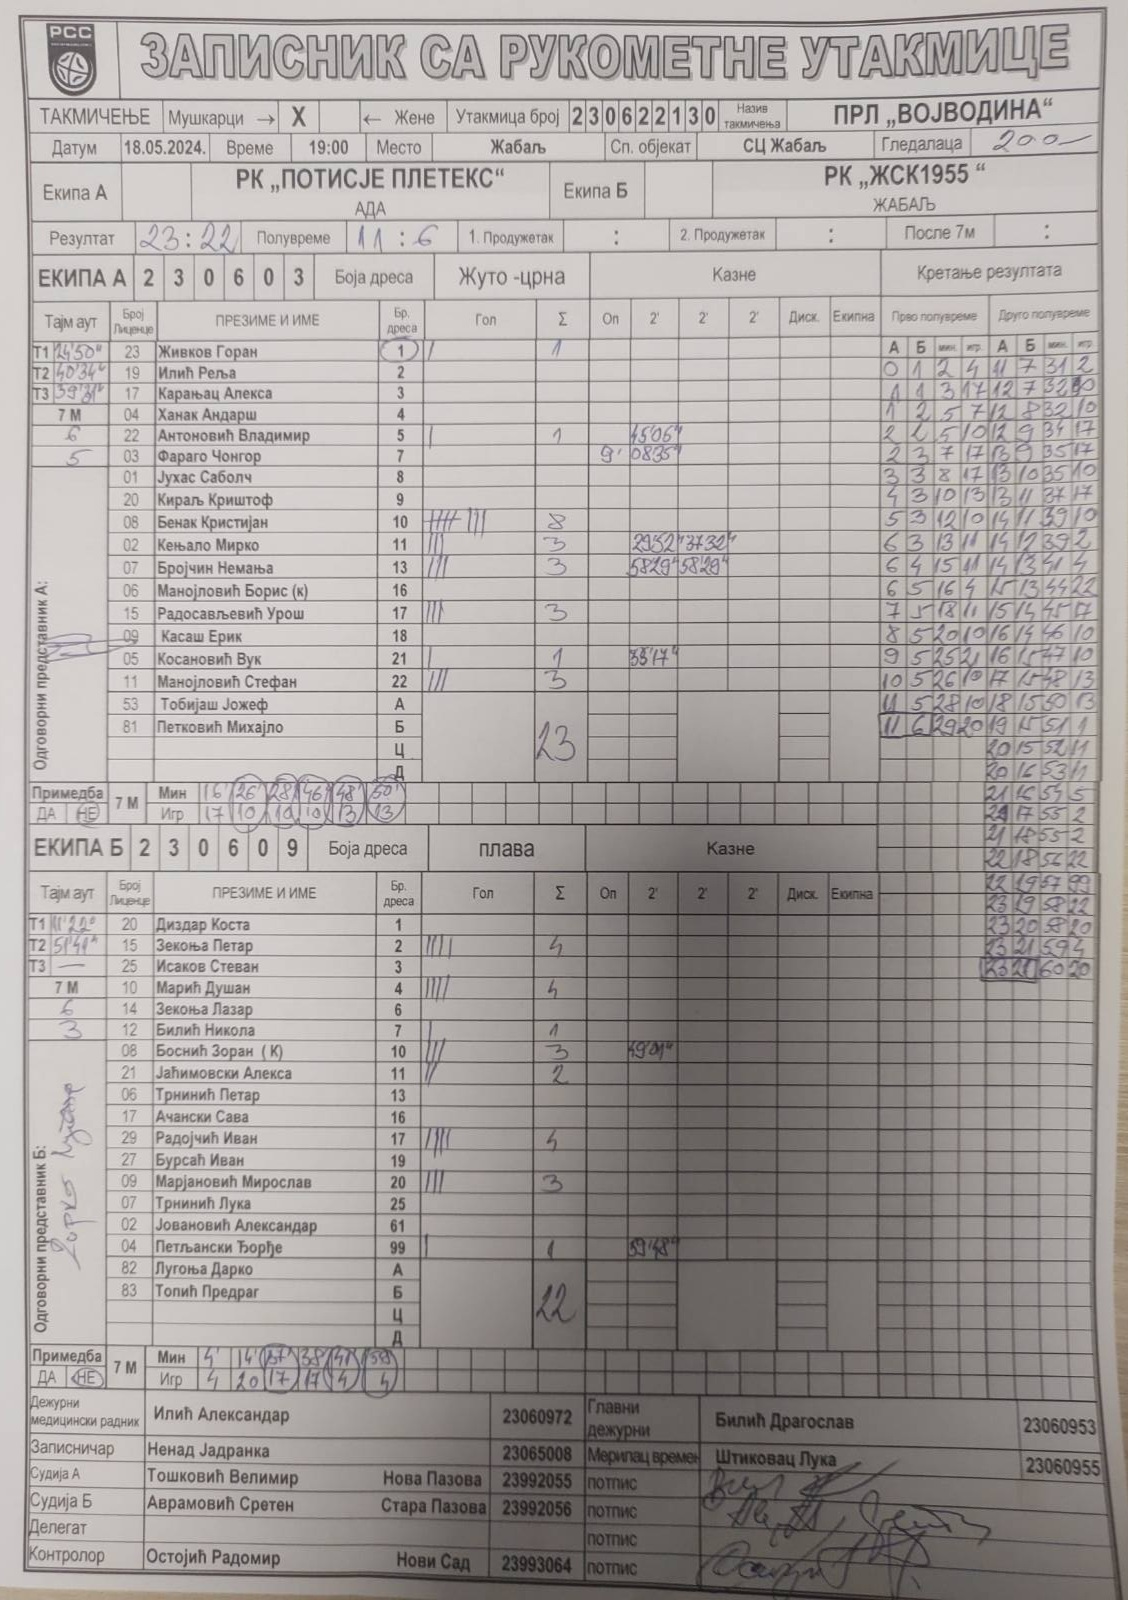 РСС
ЗАПИСНИК СА РУКОМЕТНЕ УТАКМИЦЕ
ТАКМИЧЕЊЕ Мушкарци → X ← Жене Утакмица број 2 3 0 6 2 2 1 3 0 Назив такмичења ПРЛ „ВОЈВОДИНА“
Датум 18.05.2024. Време 19:00 Место Жабаљ Сп. објекат СЦ Жабаљ Гледалаца 200
Екипа А РК „ПОТИСЈЕ ПЛЕТЕКС“ АДА Екипа Б РК „ЖСК1955 “ ЖАБАЉ
Резултат 23:22 Полувреме 11:6 1. Продужетак : 2. Продужетак : После 7м :
ЕКИПА А 2 3 0 6 0 3 Боја дреса Жуто -црна Казне Кретање резултата
Тајм аут Број Лиценце ПРЕЗИМЕ И ИМЕ Бр. дреса Гол Σ Оп 2' 2' 2' Диск. Екипна Прво полувреме Друго полувреме
А Б мин. игр. А Б мин. игр.
Т1 24'50" 23 Живков Горан 1 | 1 0 1 2 4 11 7 31 2
Т2 40'34" 19 Илић Реља 2 1 1 3 17 12 7 32 10
Т3 59'31" 17 Карањац Алекса 3 1 2 5 7 12 8 32 10
7 М 04 Ханак Андарш 4
6 22 Антоновић Владимир 5 | 1 45'06" 2 2 5 10 12 9 34 17
5 03 Фараго Чонгор 7 9' 08'35" 2 3 7 17 13 9 35 17
01 Јухас Саболч 8 3 3 8 17 13 10 35 10
20 Кираљ Криштоф 9 4 3 10 13 13 11 37 17
08 Бенак Кристијан 10 8 5 3 12 10 14 11 39 10
02 Кењало Мирко 11 ||| 3 29'52" 37'32" 6 3 13 11 14 12 39 2
07 Бројчин Немања 13 ||| 3 58'29" 58'29" 6 4 15 11 14 13 41 4
06 Манојловић Борис (к) 16 6 5 16 4 15 13 44 22
15 Радосављевић Урош 17 ||| 3 7 5 18 11 15 14 45 17
09 Касаш Ерик 18 8 5 20 10 16 14 46 10
05 Косановић Вук 21 | 1 33'17" 9 5 25 21 16 15 47 10
11 Манојловић Стефан 22 ||| 3 10 5 26 10 17 15 48 13
53 Тобијаш Јожеф А 11 5 28 10 18 15 50 13
81 Петковић Михајло Б 23 11 6 29 20 19 15 51 1
Ц 20 15 52 11
Д 20 16 53 11
Одговорни представник А:
Примедба 7 М Мин 16' 26' 28' 46' 48' 50' 21 16 54 5
ДА НЕ Игр 17 10 10 10 13 13 21 17 55 2
ЕКИПА Б 2 3 0 6 0 9 Боја дреса плава Казне 21 18 55 2
22 18 56 22
Тајм аут Број Лиценце ПРЕЗИМЕ И ИМЕ Бр. дреса Гол Σ Оп 2' 2' 2' Диск. Екипна 22 19 57 99
23 19 58 22
Т1 11'22" 20 Диздар Коста 1 23 20 58 20
Т2 51'41" 15 Зекоња Петар 2 |||| 4 23 21 59 4
Т3 — 25 Исаков Стеван 3 23 22 60 20
7 М 10 Марић Душан 4 |||| 4
6 14 Зекоња Лазар 6
3 12 Билић Никола 7 | 1
08 Боснић Зоран ( К) 10 ||| 3 49'01"
21 Јаћимовски Алекса 11 || 2
06 Трнинић Петар 13
17 Ачански Сава 16
29 Радојчић Иван 17 |||| 4
27 Бурсаћ Иван 19
09 Марјановић Мирослав 20 ||| 3
07 Трнинић Лука 25
02 Јовановић Александар 61
04 Петљански Ђорђе 99 | 1 59'48"
82 Лугоња Дарко А
83 Топић Предраг Б 22
Ц
Д
Одговорни представник Б:
Примедба 7 М Мин 4' 14' 37' 38' 41' 59'
ДА НЕ Игр 4 20 17 17 4 4
Дежурни медицински радник Илић Александар 23060972 Главни дежурни Билић Драгослав 23060953
Записничар Ненад Јадранка 23065008 Мерилац времен Штиковац Лука 23060955
Судија А Тошковић Велимир Нова Пазова 23992055 потпис
Судија Б Аврамовић Сретен Стара Пазова 23992056 потпис
Делегат потпис
Контролор Остојић Радомир Нови Сад 23993064 потпис